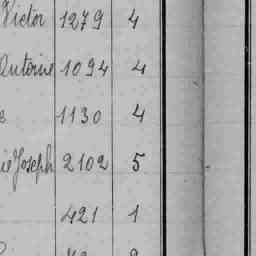 Victor 1279 4
Antoine 1094 4
e 1130 4
ie Joseph 2102 5
421 1